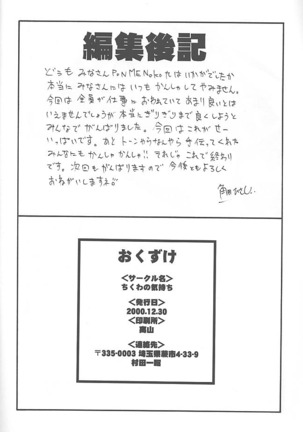 編集後記
どうも みなさん PoNMENokoたはいかがでしたか
本当に みなさんには いつも かんしゃしてやみません。
今回は 全員が仕事におわれていて あまり良いとは
いえませんでしょうが 本当にぎりぎりまで良くしようと
みんなでがんばりました。今回は これがせー
いっぱいです。あと トーンからなんやら 手伝ってくれた
みんなにも かんしゃかんしゃ!! それじゃ これで終わり
です。次回もがんばりますので 今後ともよろしく
おねがいしますよ
おくずけ
<サークル名>
ちくわの気持ち
<発行日>
2000.12.30
<印刷所>
嵩山
<連絡先>
〒335-0003 埼玉県蕨市4-33-9
村田一